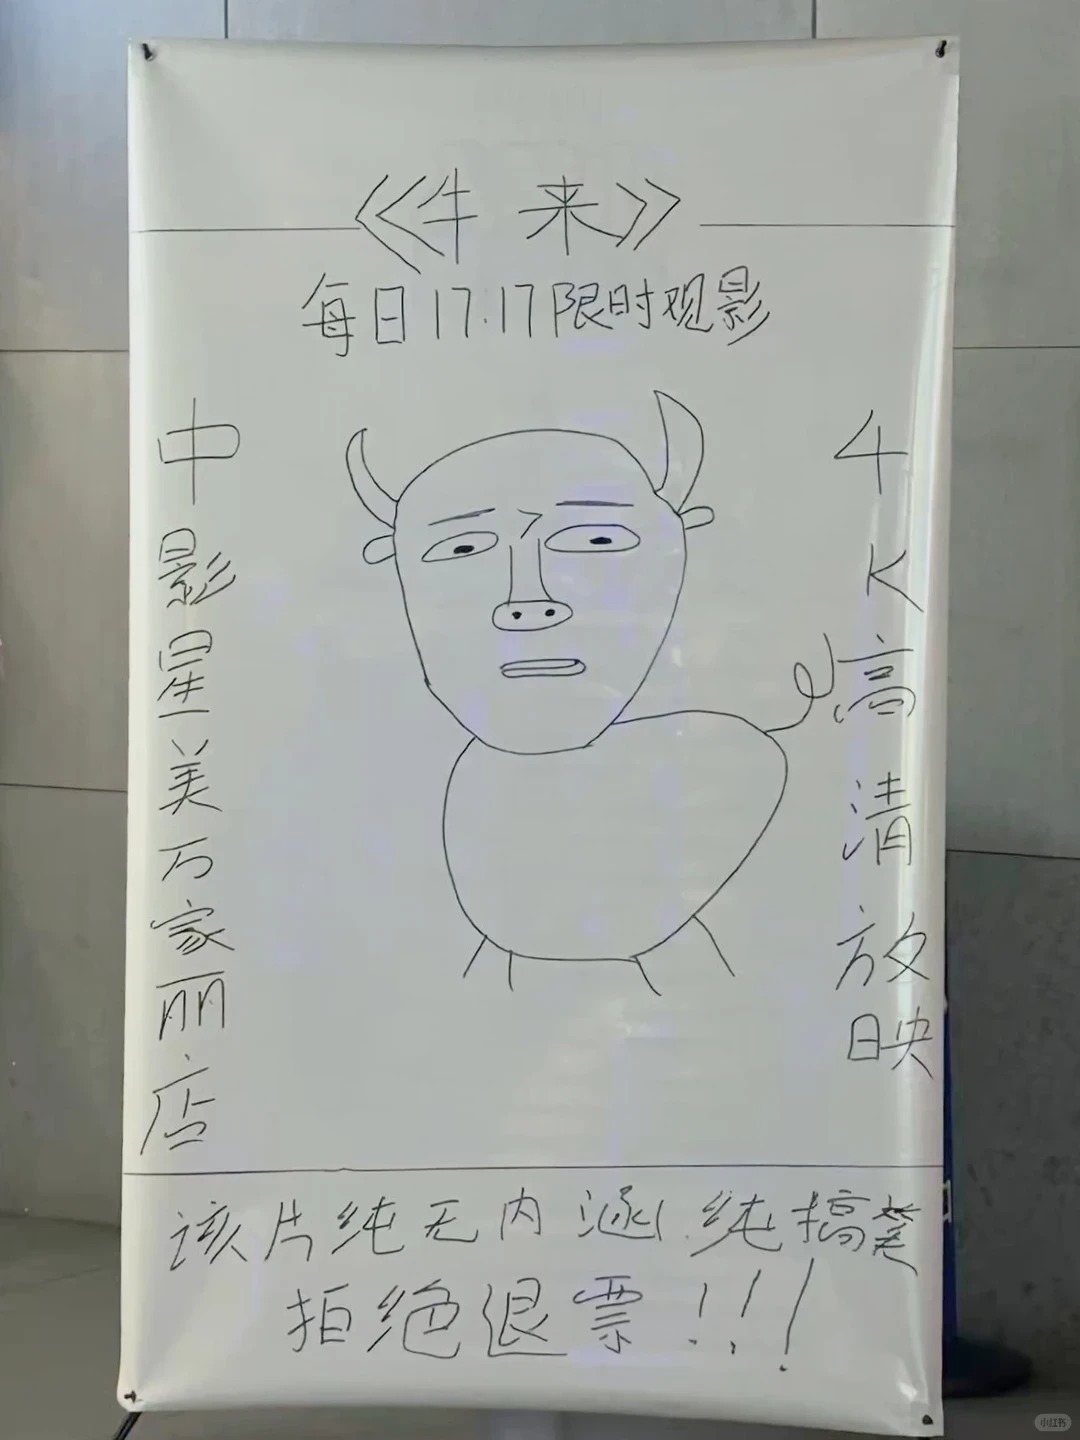 《牛来》
每日17.17限时观影
中影星美万家丽店
4K高清放映
该片纯无内涵.纯搞凳
拒绝退票！！！
小红书